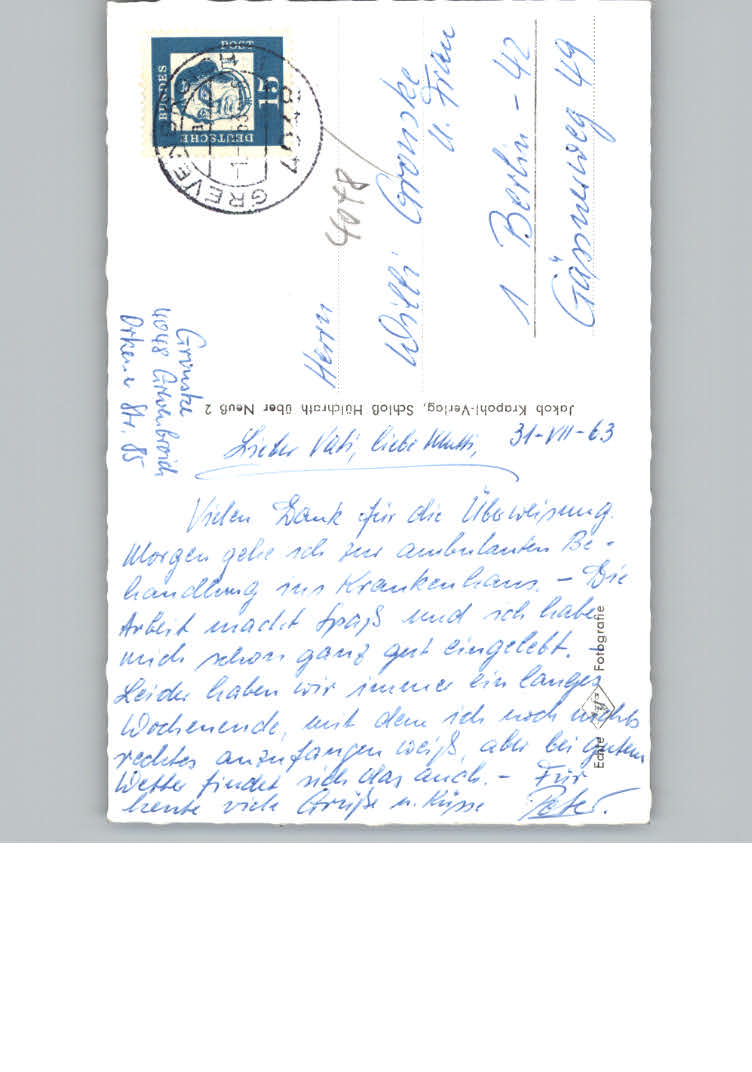 DEUTSCHE
BUNDES
POST
15
GREVENBROICH
4048
Herrn
Willi Gronske
u. Frau
1 Berlin - 42
Gässnerweg 49
Gronske
4048 Grevenbroich
Str. 85
Jakob Krapohl-Verlag, Schloß Hülchrath über Neuß 2
31-VII-63
Lieber Vati, liebe Mutti,
Vielen Dank für die Überweisung.
Morgen gehe ich zur ambulanten Be-
handlung ins Krankenhaus. - Die
Arbeit macht Spaß und ich habe
mich schon ganz gut eingelebt. -
Leider haben wir immer ein langes
Wochenende, mit dem ich noch nichts
rechtes anzufangen weiß, aber bei gutem
Wetter findet sich das auch. - Für
heute viele Grüße u. Küsse Peter.
Echte Fotografie